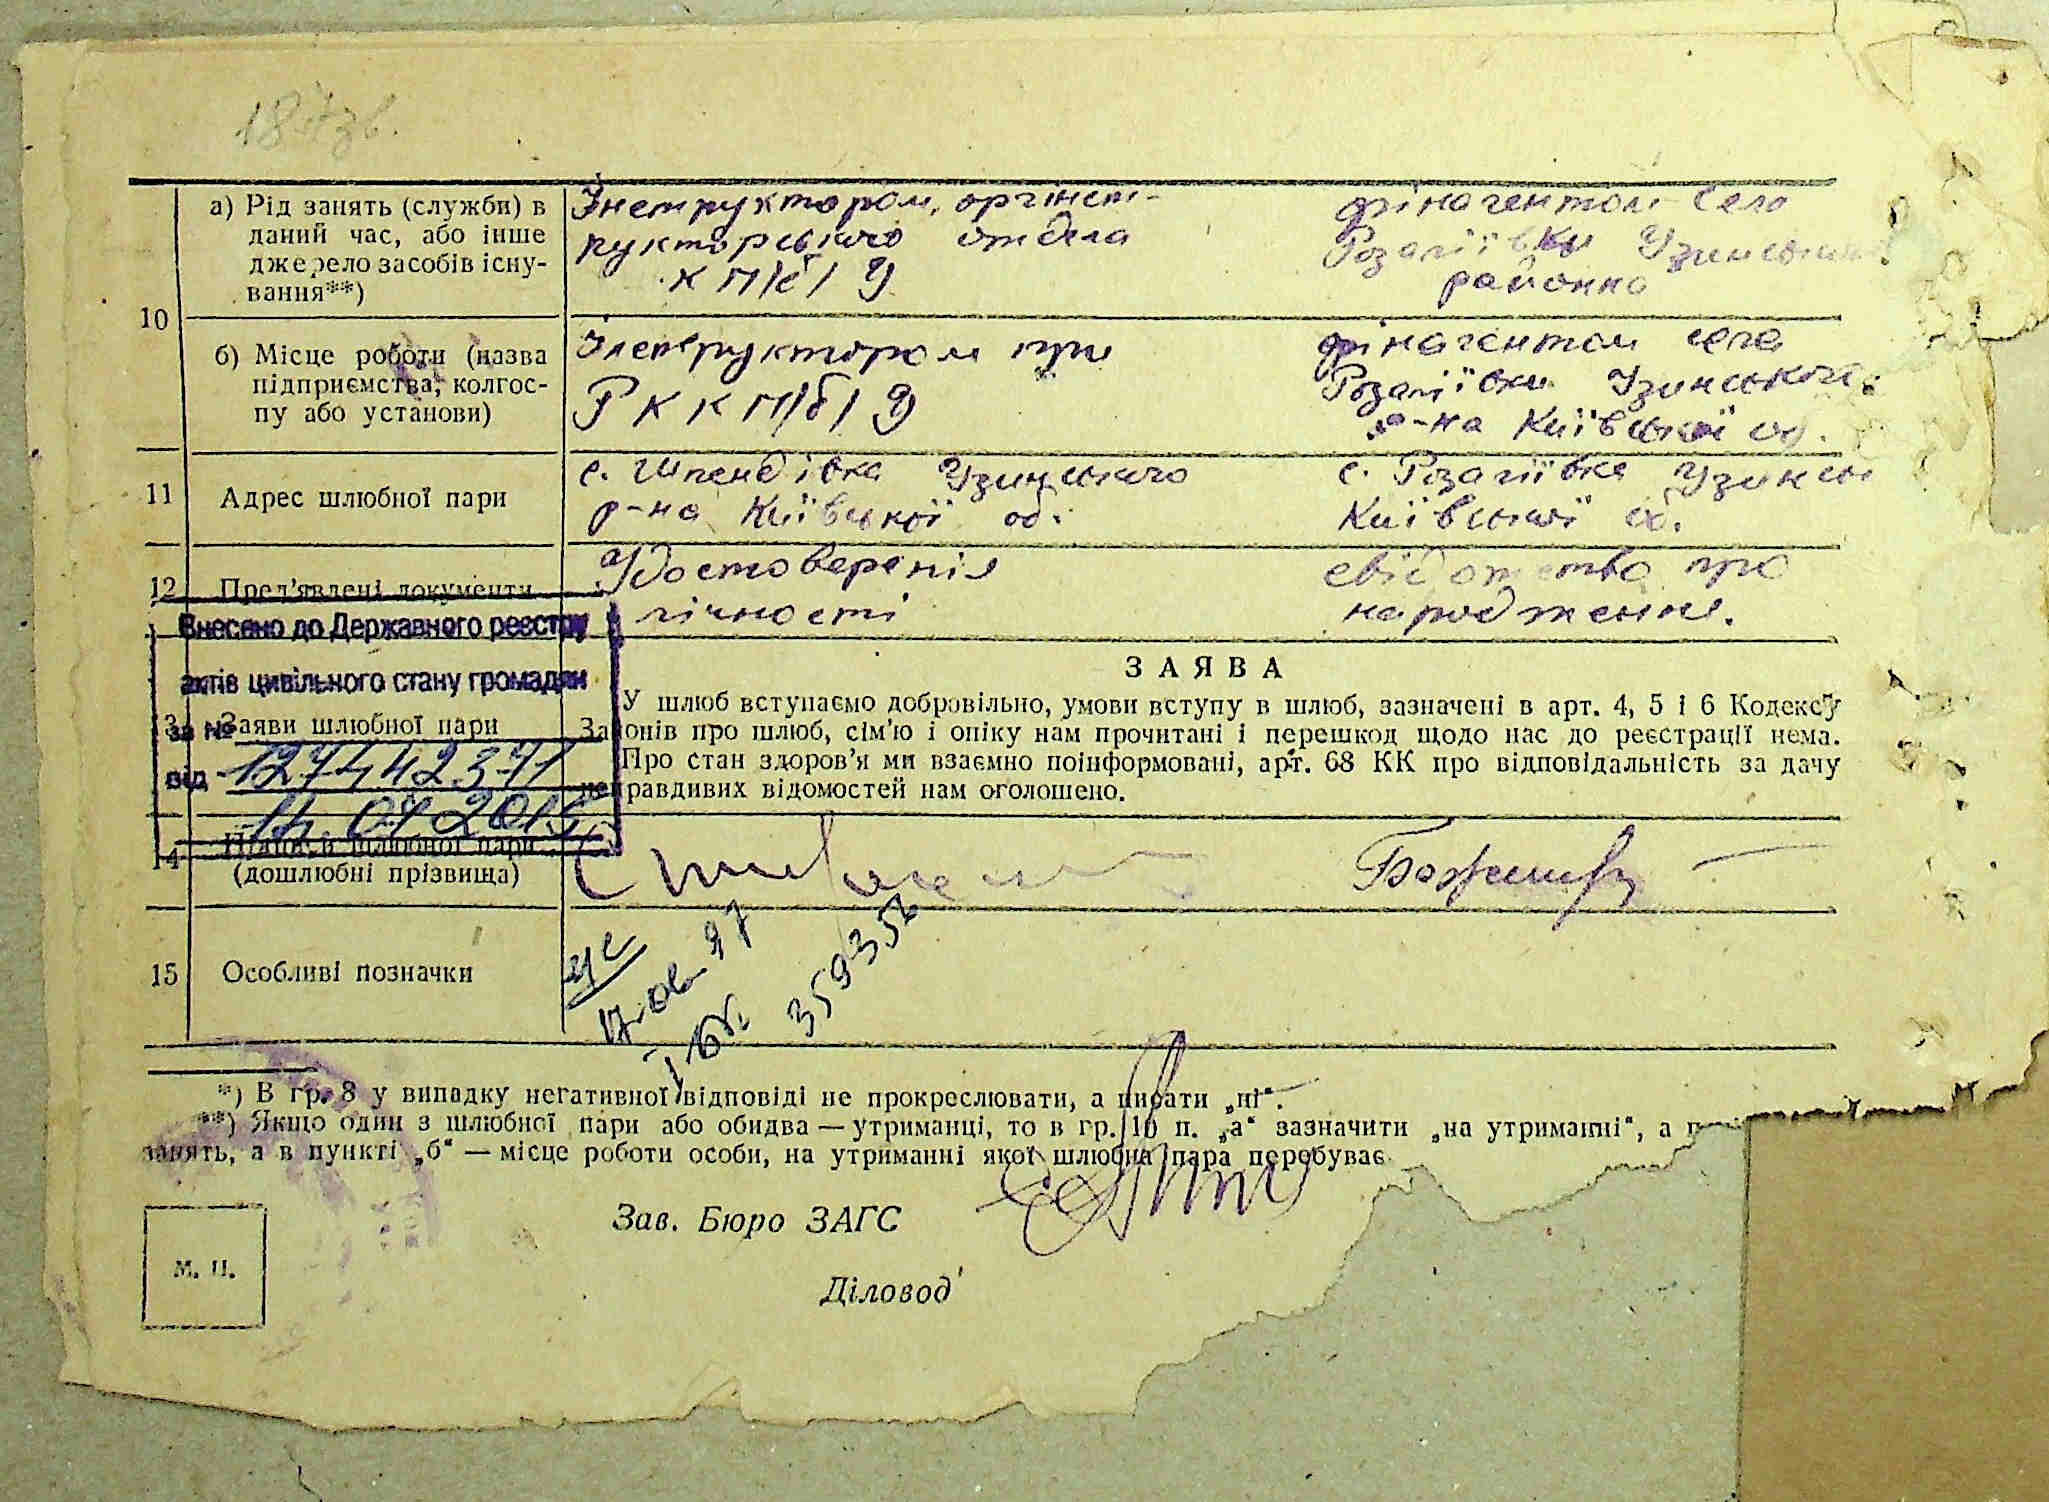 187зв.
10
а) Рід занять (служби) в
даний час, або інше
джерело засобів існу-
вання**)
Інструктором, оргінст-
рукторського отдела
КП/б/У
фінагентом село
Розаліївки Узинського
районна
б) Місце роботи (назва
підприємства, колгос-
пу або установи)
Інструктором при
РККП/б/У
фінагентом села
Розаліївки Узинського
р-на Київської об.
11
Адрес шлюбної пари
с. Шпендівка Узинського
р-на Київської об.
с. Розаліївка Узинсь
Київської об.
12
Пред'явлені документи
Удостоверенія
лічності
свідотство про
народження.
Внесено до Державного реєстру
актів цивільного стану громадян
за №
від
1274 42371
Заяви шлюбної пари
ЗАЯВА
У шлюб вступаємо добровільно, умови вступу в шлюб, зазначені в арт. 4, 5 і 6 Кодексу
Законів про шлюб, сім'ю і опіку нам прочитані і перешкод щодо нас до реєстрації нема.
Про стан здоров'я ми взаємно поінформовані, арт. 68 КК про відповідальність за дачу
неправдивих відомостей нам оголошено.
14
Підписи шлюбної пари
(дошлюбні прізвища)
15
Особливі позначки
359352
*) В гр. 8 у випадку негативної відповіді не прокреслювати, а писати „ні“.
**) Якщо один з шлюбної пари або обидва — утриманці, то в гр. 10 п. „а“ зазначити „на утриманні“, а
занять, а в пункті „б“ — місце роботи особи, на утриманні якої шлюбна пара перебуває
Зав. Бюро ЗАГС
Діловод
М. П.